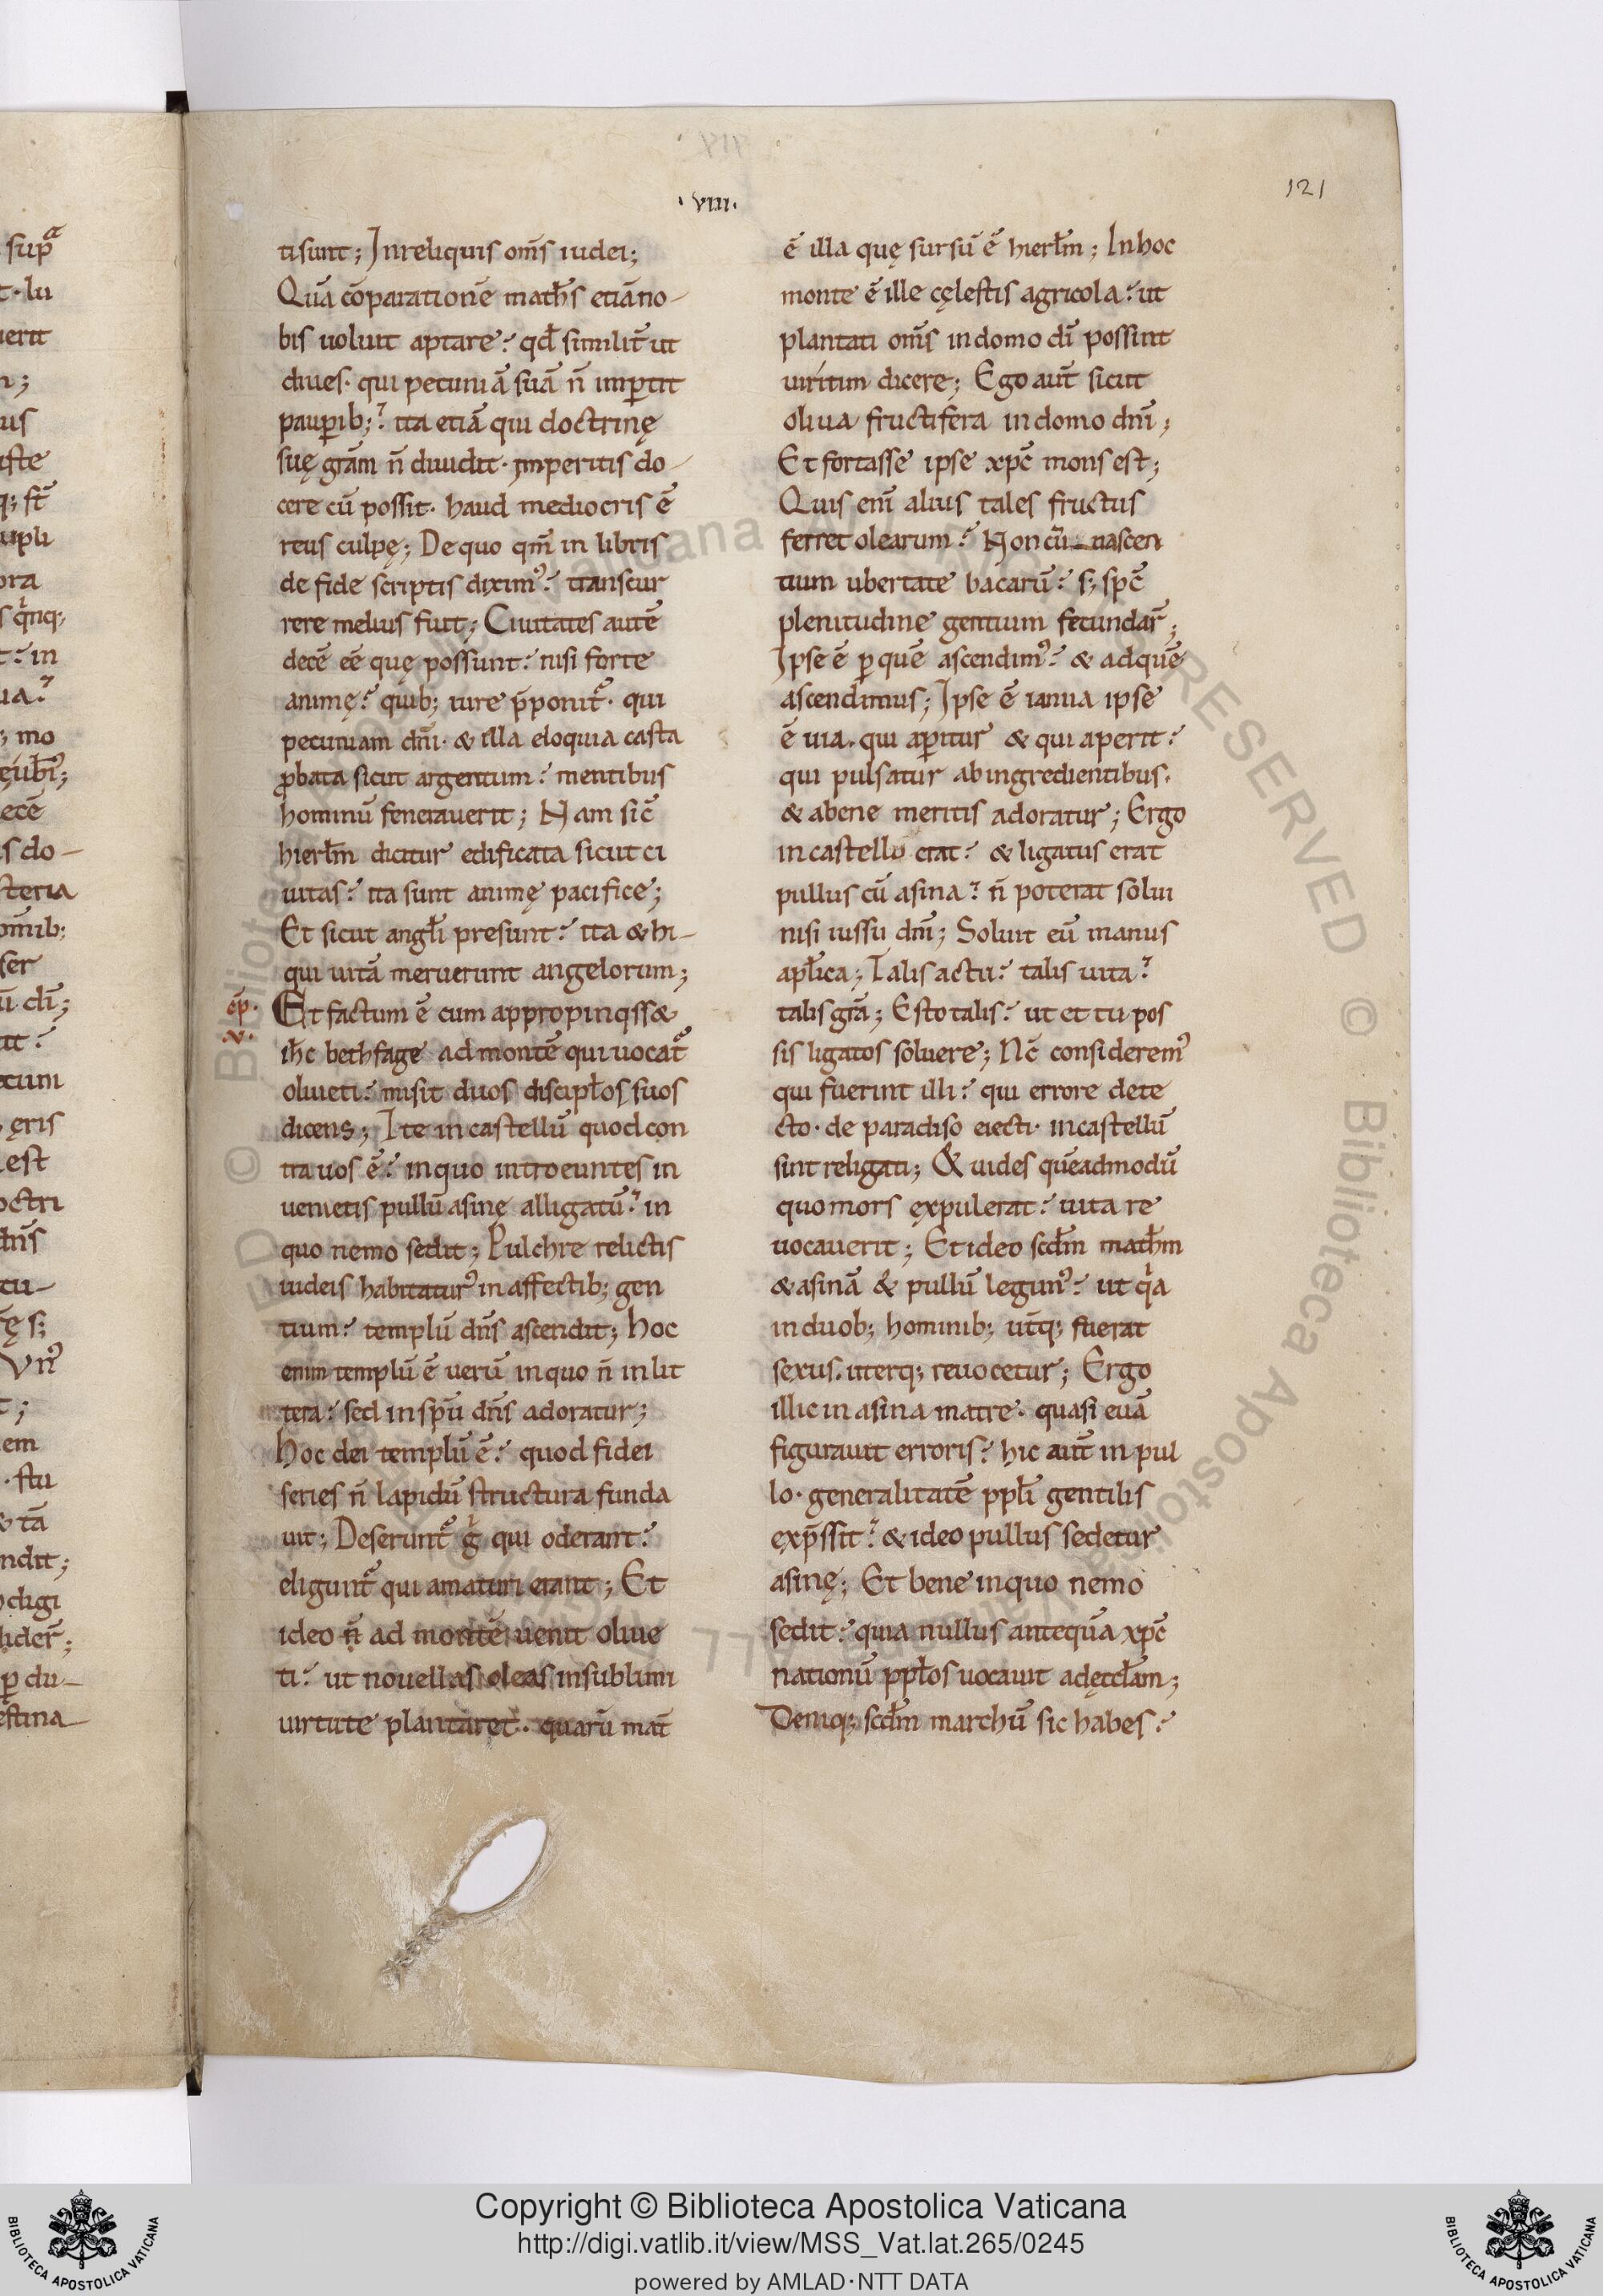 .VIII.
121
tisunt; Inreliquis om̄s iudei;
Quā cōparationē math̄s etiāno-
bis uoluit aptare? qd̄ similit̄ ut
diues· qui pecuniā suā n̄ imꝑtit
pauꝑib;? ita etiā qui doctrinę
suę grām n̄ diuidit· imperitis do-
cere cū possit· haud mediocris ē
reus culpę; De quo qm̄ in libris
de fide scriptis diximꝰ? transcur
rere melius fuit; Ciuitates autē
decē eē quę possunt? nisi forte
animę? quib; iure p̄ponit᷑· qui
pecuniam dn̄i· & illa eloquia casta
ꝓbata sicut argentum? mentibus
hominū fenerauerit; Nam sic̄
hierłm dicitur edificata sicut ci
uitas? ita sunt animę pacifice;
Et sicut angłi presunt? ita & hi-
qui uitā meruerunt angelorum;
ēp·
·x·
Et factum ē cum appropinqss&
ih̄c bethfage ad montē qui uocat᷑
oliueti? misit duos discipłos suos
dicens; Ite in castellū quod con
tra uos ē? inquo introeuntes in
uenietis pullū asinę alligatū? in
quo nemo sedit; Pulchre relictis
iudeis habitaturꝰ in affectib; gen
tium? templū dn̄s ascendit; Hoc
enim templū ē uerū inquo n̄ in lit
tera? sed in spū dn̄s adoratur;
Hoc dei templū ē? quod fidei
series n̄ lapidū structura funda
uit; Deserunt᷑ g̊ qui oderant?
eligunt᷑ qui amaturi erant; Et
ideo ñ ad montē uenit oliue
ti? ut nouellas oleas insublimi
uirtute plantaret·. quarū mat̄
ē illa quę sursū ē hierłm; Inhoc
monte ē ille cęlestis agricola? ut
plantati om̄s indomo dī possint
uiritim dicere; Ego aut̄ sicut
oliua fructifera indomo dn̄i;
Et fortasse ipse xpc̄ mons est;
Quis enī alius tales fructus
ferret olearum? Non cū nascen
tium ubertate bacarū? s; spc̄
plenitudine gentium fecundar̄;
Ipse ē ꝑ quē ascendimꝰ? & adquē
ascendimus; Ipse ē ianua ipse
ē uia· qui aꝑitur & qui aperit?
qui pulsatur abingredientibus·
& abene meritis adoratur; Ergo
incastello erat? & ligatus erat
pullus cū asina? n̄ poterat solui
nisi iussu dn̄i; Soluit eū manus
apłica; Talis actu? talis uita?
talis grā; Esto talis? ut et tu pos
sis ligatos soluere; Nc̄ consideremꝰ
qui fuerint illi? qui errore dete
cto· de paradiso eiecti· incastellū
sint religati; & uides quēadmodū
quomors expulerat? uita re
uocauerit; Et ideo scd̄m math̄m
& asinā & pullū legimꝰ? ut qa
induob; hominib; ut̄q; fuerat
sexus· uterq; reuocetur; Ergo
illic in asina matre· quasi euā
figurauit erroris? hic aut̄ in pul
lo· generalitatē ppłi gentilis
exp̄ssit? & ideo pullus sedetur
asinę; Et bene inquo nemo
sedit? quia nullus antequā xpc̄
nationū ppłos uocauit adęcclam;
Deniq; scd̄m marchū sic habes?
Copyright © Biblioteca Apostolica Vaticana
http://digi.vatlib.it/view/MSS_Vat.lat.265/0245
powered by AMLAD·NTT DATA
BIBLIOTECA APOSTOLICA VATICANA
BIBLIOTECA APOSTOLICA VATICANA